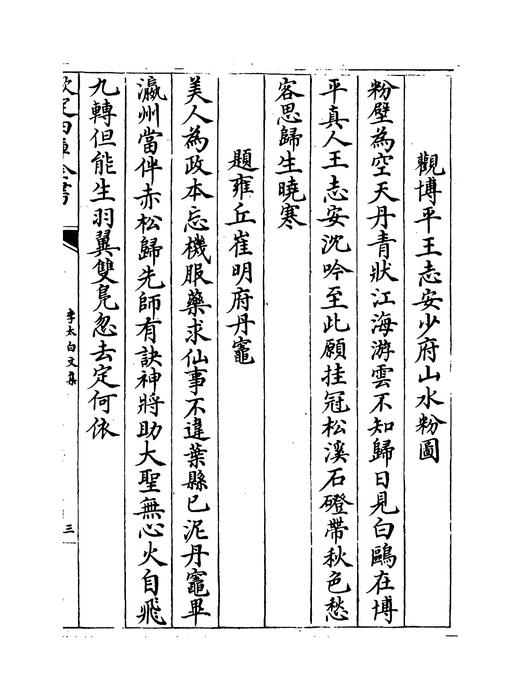 觀博平王志安少府山水粉圖
粉壁為空天丹青狀江海游雲不知歸日見白鷗在博
平真人王志安沈吟至此願挂冠松溪石磴帶秋色愁
客思歸生曉寒
題雍丘崔明府丹竈
美人為政本忘機服藥求仙事不違葉縣已泥丹竈畢
瀛州當伴赤松歸先師有訣神將助大聖無心火自飛
九轉但能生羽翼雙鳧忽去定何依
欽定四庫全書
李太白文集
三